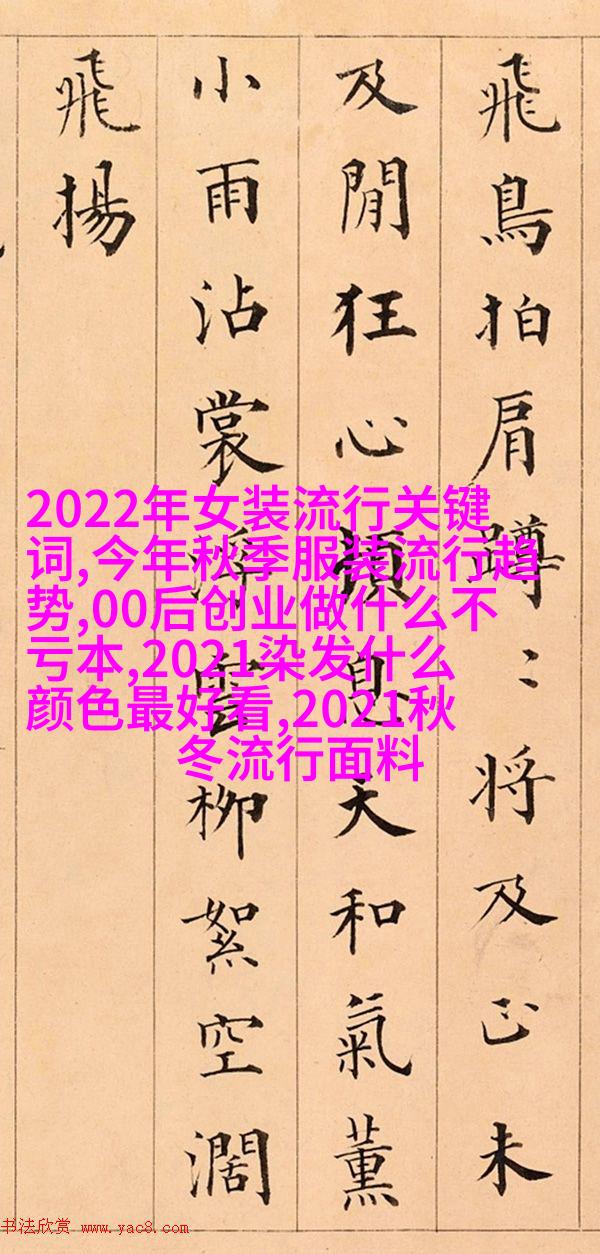 飛鳥拍肩蹲:將及正未
及閒狂心頓息天和氣薰
小雨沾裳雲柳絮空濶
飛揚
2022年女装流行关键
词,今年秋季服装流行趋
势,00后创业做什么不
亏本,2021染发什么
颜色最好看,2021秋
冬流行面料
书法欣赏 www.yac8.com